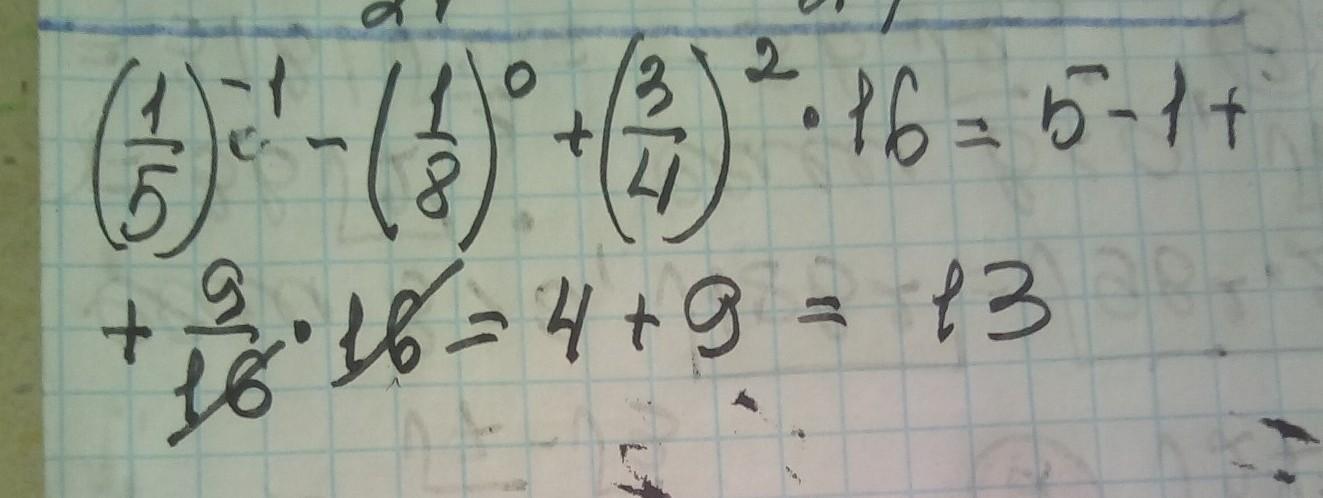 (1/5)^-1 - (1/8)^0 + (3/4)^2 · 16 = 5 - 1 +
+ 9/16 · 16 = 4 + 9 = 13